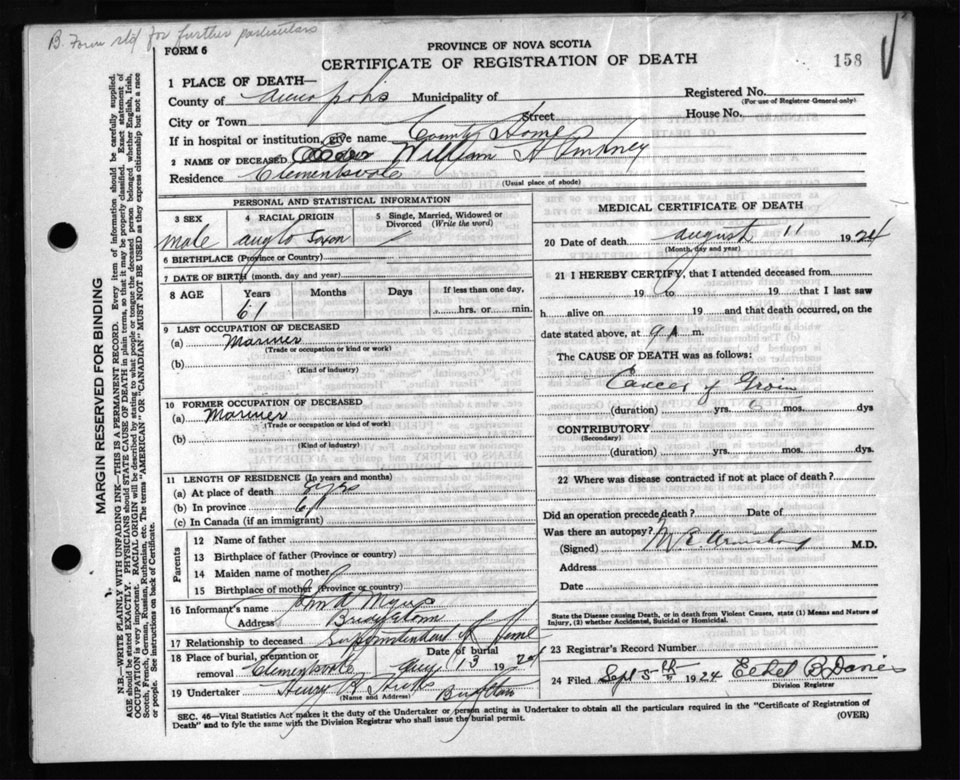 B. Form std for further particulars
FORM 6
PROVINCE OF NOVA SCOTIA
CERTIFICATE OF REGISTRATION OF DEATH
158
1 PLACE OF DEATH—
County of Annapolis Municipality of
Registered No.
(For use of Registrar General only)
City or Town Street House No.
If in hospital or institution, give name County Home
2 NAME OF DECEASED William H Pinkney
Residence Clementsvale
(Usual place of abode)
PERSONAL AND STATISTICAL INFORMATION
3 SEX male
4 RACIAL ORIGIN anglo Saxon
5 Single, Married, Widowed or Divorced (Write the word)
6 BIRTHPLACE (Province or Country)
7 DATE OF BIRTH (month, day and year)
8 AGE Years Months Days If less than one day,
61 hrs. or min.
9 LAST OCCUPATION OF DECEASED
(a) Mariner
(Trade or occupation or kind or work)
(b)
(Kind of industry)
10 FORMER OCCUPATION OF DECEASED
(a) Mariner
(Trade or occupation or kind or work)
(b)
(Kind of industry)
11 LENGTH OF RESIDENCE (In years and months)
(a) At place of death yrs
(b) In province 61
(c) In Canada (if an immigrant)
Parents
12 Name of father
13 Birthplace of father (Province or country)
14 Maiden name of mother
15 Birthplace of mother (Province or country)
16 Informant's name
Address Bridgetown
17 Relationship to deceased Superintendent of Home
18 Place of burial, cremation or removal Clementsvale
Date of burial Aug 13 1924
19 Undertaker Henry B Hicks Bridgetown
(Name and Address)
MEDICAL CERTIFICATE OF DEATH
20 Date of death August 11 1924
(Month, day and year)
21 I HEREBY CERTIFY, that I attended deceased from
19 to 19 that I last saw
h alive on 19 and that death occurred, on the
date stated above, at 9 A m.
The CAUSE OF DEATH was as follows:
Cancer of Groin
(duration) yrs. 6 mos. dys
CONTRIBUTORY
(Secondary)
(duration) yrs. mos. dys.
22 Where was disease contracted if not at place of death?
Did an operation precede death? Date of
Was there an autopsy?
(Signed) M. E. Armstrong M.D.
Address
Date
State the Disease causing Death, or in death from Violent Causes, state (1) Means and Nature of
Injury, (2) whether Accidental, Suicidal or Homicidal.
23 Registrar's Record Number
24 Filed Sept 5th 1924 Ethel B. Davies
Division Registrar
SEC. 46—Vital Statistics Act makes it the duty of the Undertaker or person acting as Undertaker to obtain all the particulars required in the "Certificate of Registration of
Death" and to fyle the same with the Division Registrar who shall issue the burial permit.
(OVER)
MARGIN RESERVED FOR BINDING
N.B.—WRITE PLAINLY WITH UNFADING INK—THIS IS A PERMANENT RECORD. Every item of information should be carefully supplied.
AGE should be stated EXACTLY. PHYSICIANS should STATE CAUSE OF DEATH in plain terms, so that it may be properly classified. Exact statement of
OCCUPATION is very important. RACIAL ORIGIN will be described by stating to what people or tongue the deceased person belonged whether English, Irish,
Scotch, French, German, Russian, Ruthenian, etc. The terms "AMERICAN" OR "CANADIAN" MUST NOT BE USED as they express citizenship but not a race
or people. See instructions on back of Certificate.